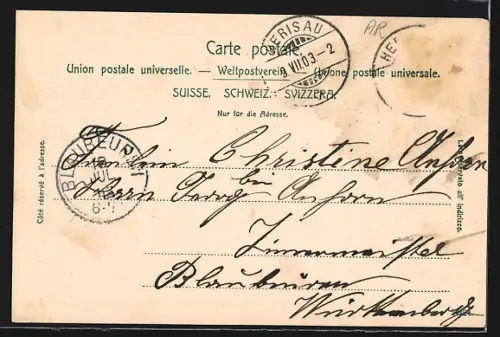 AR
Carte postale.
Union postale universelle. — Weltpostverein. — Unione postale universale.
SUISSE. SCHWEIZ. SVIZZERA.
Nur für die Adresse.
HERISAU
9.VII.03.–2
HE
BLAUBEUREN
JUL
6-7
Côté réservé à l'adresse.
Lato riservato all' indirizzo.
Fräulein Christine
bei
Herrn Georg
Zimmermeister
Blaubeuren
Württemberg